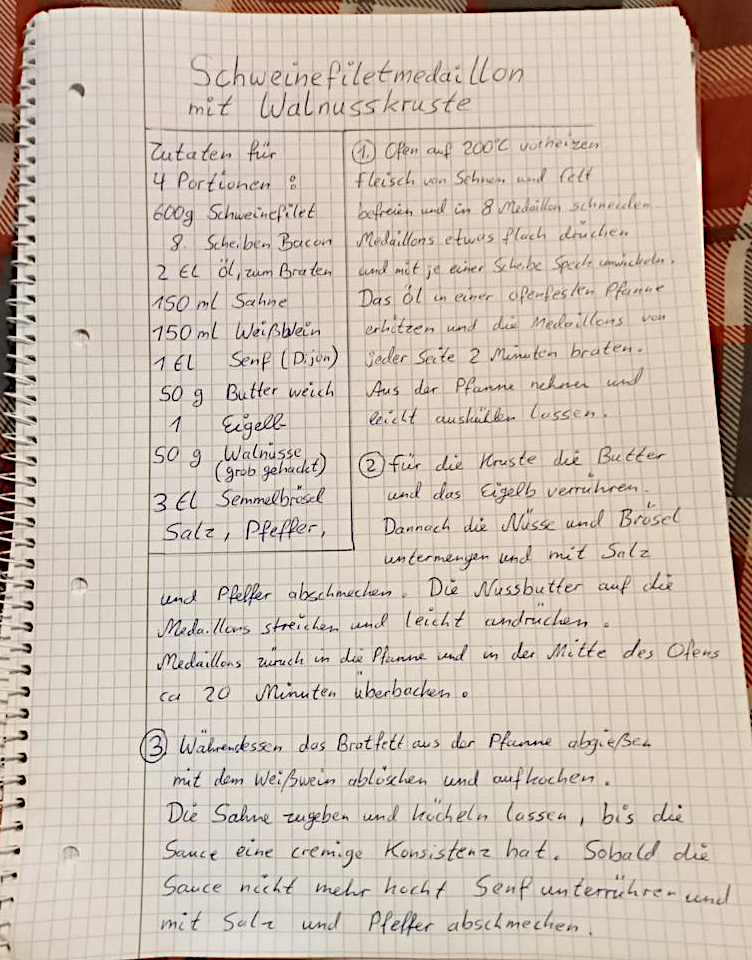 Schweinefiletmedaillon
mit Walnusskruste
Zutaten für
4 Portionen :
600g Schweinefilet
8. Scheiben Bacon
2 EL Öl, zum Braten
150 ml Sahne
150 ml Weißwein
1 El Senf (Dijon)
50 g Butter weich
1 Eigelb
50 g Walnüsse
(grob gehackt)
3 El Semmelbrösel
Salz, Pfeffer,
1. Ofen auf 200°C vorheizen
Fleisch von Sehnen und Fett
befreien und in 8 Medaillon schneiden.
Medaillons etwas flach drücken
und mit je einer Scheibe Speck umwickeln.
Das Öl in einer ofenfesten Pfanne
erhitzen und die Medaillons von
jeder Seite 2 Minuten braten.
Aus der Pfanne nehmen und
leicht auskühlen lassen.
2 für die Kruste die Butter
und das Eigelb verrühren.
Dannach die Nüsse und Brösel
untermengen und mit Salz
und Pfeffer abschmecken. Die Nussbutter auf die
Medaillons streichen und leicht andrücken.
Medaillons zurück in die Pfanne und in der Mitte des Ofens
ca 20 Minuten überbacken.
3. Währendessen das Bratfett aus der Pfanne abgießen
mit dem Weißwein ablöschen und aufkochen.
Die Sahne zugeben und köcheln lassen, bis die
Sauce eine cremige Konsistenz hat. Sobald die
Sauce nicht mehr kocht Senf unterrühren und
mit Salz und Pfeffer abschmecken.